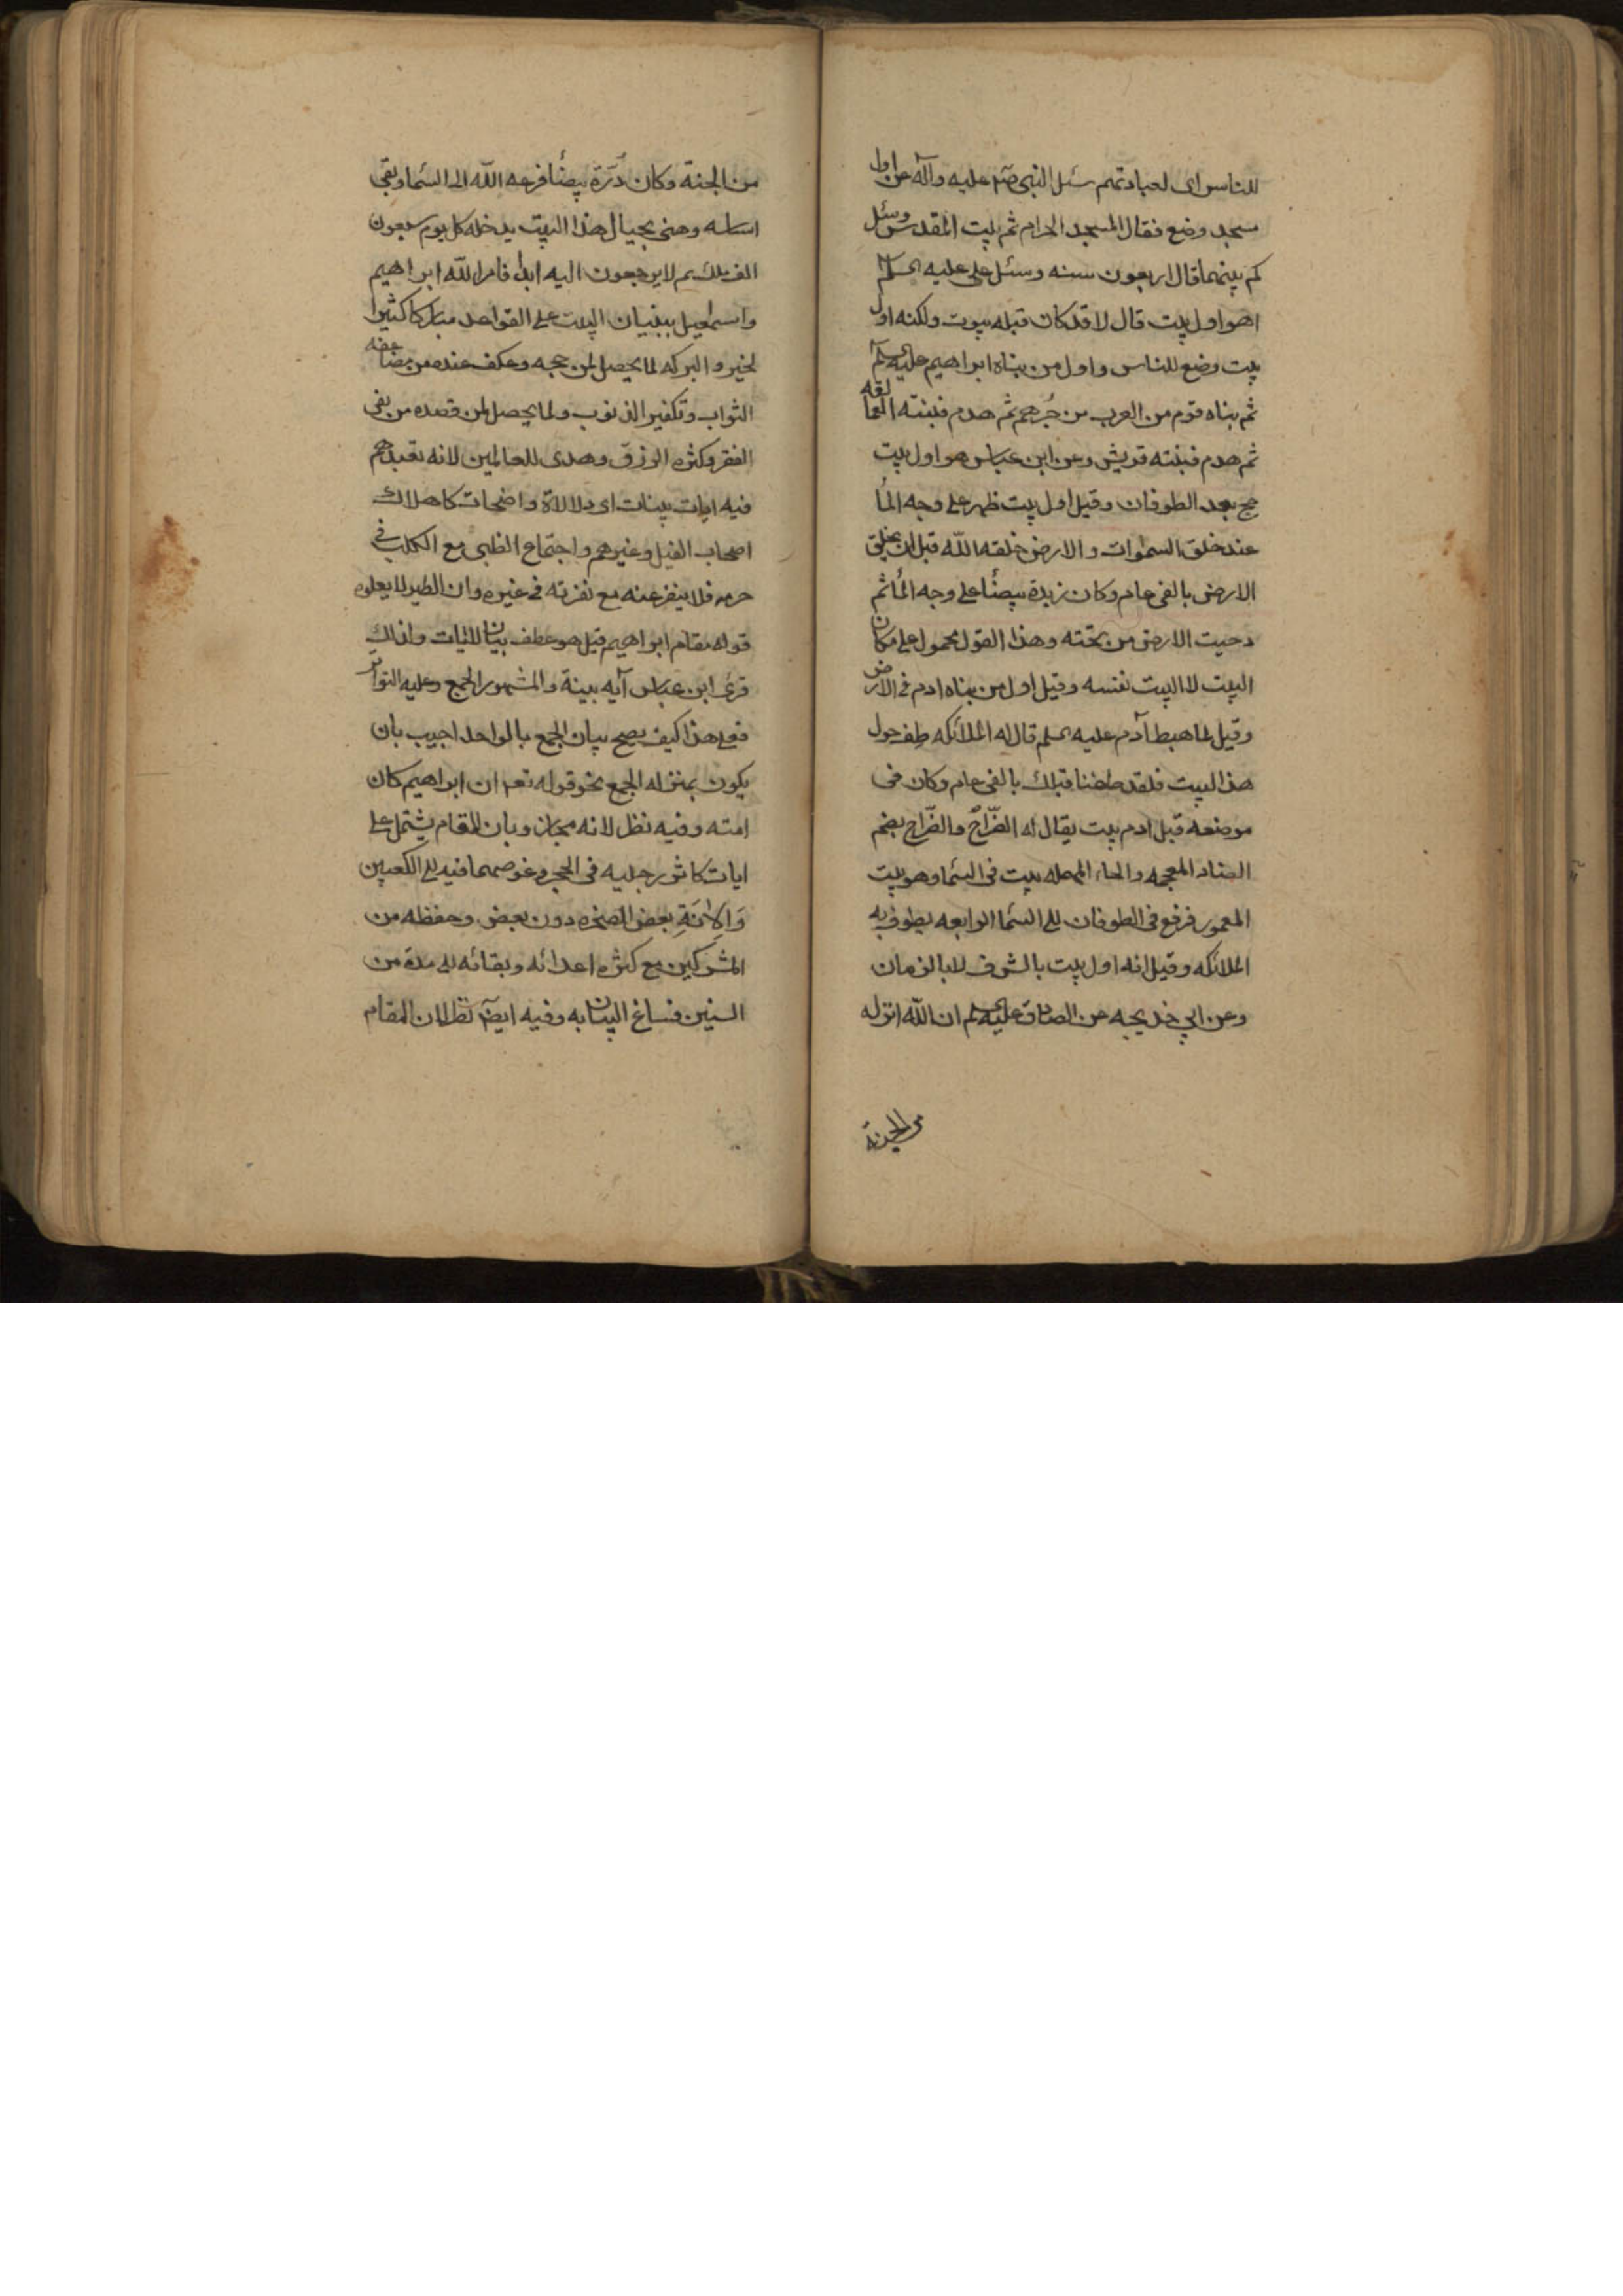 للناس اى لعبادتهم سئل النبى صلم عليه وآله عن اول
مسجد وضع فقال المسجد الحرام ثم بيت المقدس وسئل
كم بينهما قال اربعون سنه وسئل على عليه السلم
اهو اول بيت قال لا قد كان قبله بيوت ولكنه اول
بيت وضع للناس واول من بناه ابراهيم عليه السلم
ثم بناه قوم من العرب من جُرهم ثم هدم فبنته العمالقه
ثم هدم فبنته قريش وعن ابن عباس هو اول بيت
حج بعد الطوفان وقيل اول بيت ظهر على وجه المأ
عند خلق السموات والارض خلقه اللّه قبل ان يخلق
الارض بالفى عام وكان زبدة بيضأ على وجه المأ ثم
دحيت الارض من تحته وهذا القول محمول على مكان
البيت لا البيت نفسه وقيل اول من بناه ادم فى الارض
وقيل لما هبط آدم عليه السلم قال له الملائكه طف حول
هذا البيت فلقد طفنا قبلك بالفى عام وكان فى
موضعه قبل ادم بيت يقال له الضّراح والضّراح بضم
الضاد المعجمه والحاء المهمله بيت فى السما وهو بيت
المعمور فرفع فى الطوفان الى السما الرابعه يطوف به
الملائكه وقيل انه اول بيت بالشرف لا بالزمان
وعن ابى خديجه عن الصادق عليه السلم ان اللّه انزله
من الجنة
من الجنة وكان دُرّة بيضأ فرفعه اللّه الى السما وبقى
اساسه وهنى بحيال هذا البيت يدخله كل يوم سبعون
الف ملك ثم لا يرجعون اليه ابدا فامر اللّه ابراهيم
واسمعيل ببنيان البيت على القواعد مباركا كثيرا
لخير والبركه لما يحصل لمن حجه وعكف عنده من مضاعفه
الثواب وتكفير الذنوب ولما يحصل لمن قصده من نفى
الفقر وكثره الرزق وهدى للعالمين لانه تعبدهم
فيه ايات بينات اى دلالاة واضحات كاهلاك
اصحاب الفيل وغيرهم واجتماع الظبى مع الكلب فى
حرمه فلا ينفر عنه مع نفرته فى غيره وان الطير لا يعلوه
قوله مقام ابراهيم قيل هو عطف بيان للايات ولذلك
قرئ ابن عباس آيه بينة والمشهور الجمع وعليه التواتر
فعلى هذا كيف يصح بيان الجمع بالواحد اجيب بان
يكون بمنزله الجمع نحو قوله تعم ان ابراهيم كان
امته وفيه نظر لانه مجاز وبان المقام يشتمل على
ايات كاثر رجليه فى الحجر وغوصهما فيه الى الكعبين
وَالِانَةِ بعض الصخره دون بعض وحفظه من
المشركين مع كثره اعدائه وبقائه الى مدة من
السنين فساغ البيان به وفيه ايضا نظر لان المقام